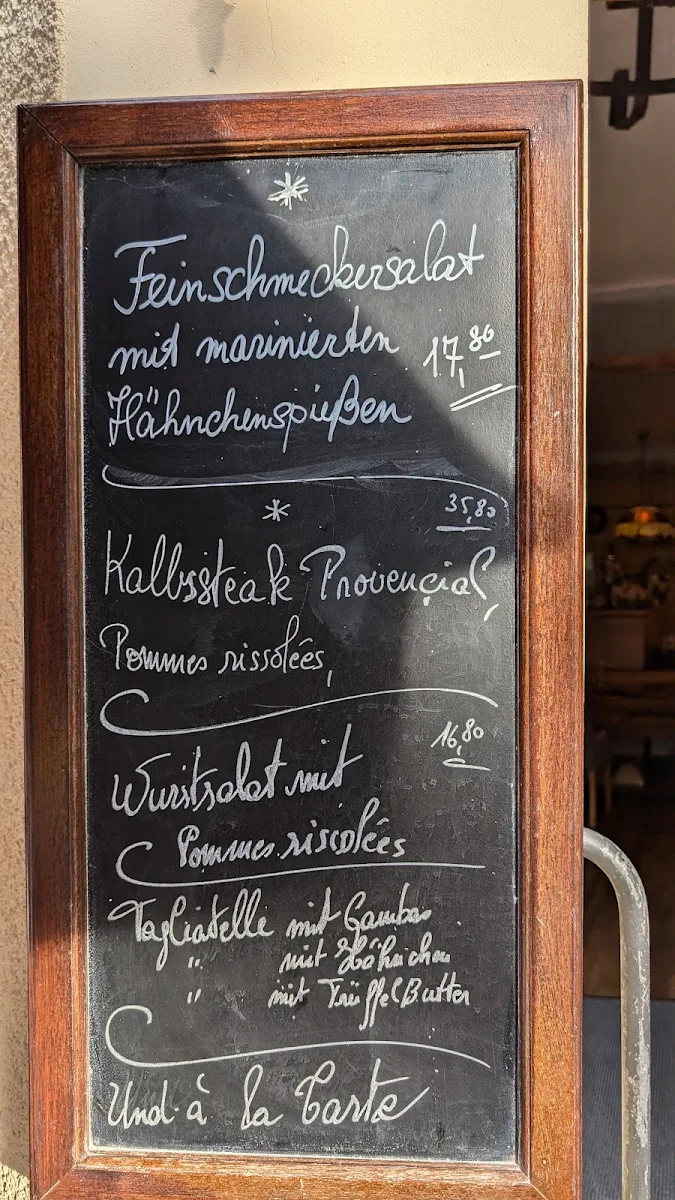 Feinschmeckersalat
mit marinierten 17,80
Hähnchenspießen
35,80
Kalbssteak Provençial,
Pommes rissolées,
16,80
Wurstsalat mit
Pommes rissolées
Tagliatelle mit Gambas
" mit Hähnchen
" mit Trüffel Butter
Und à la Carte